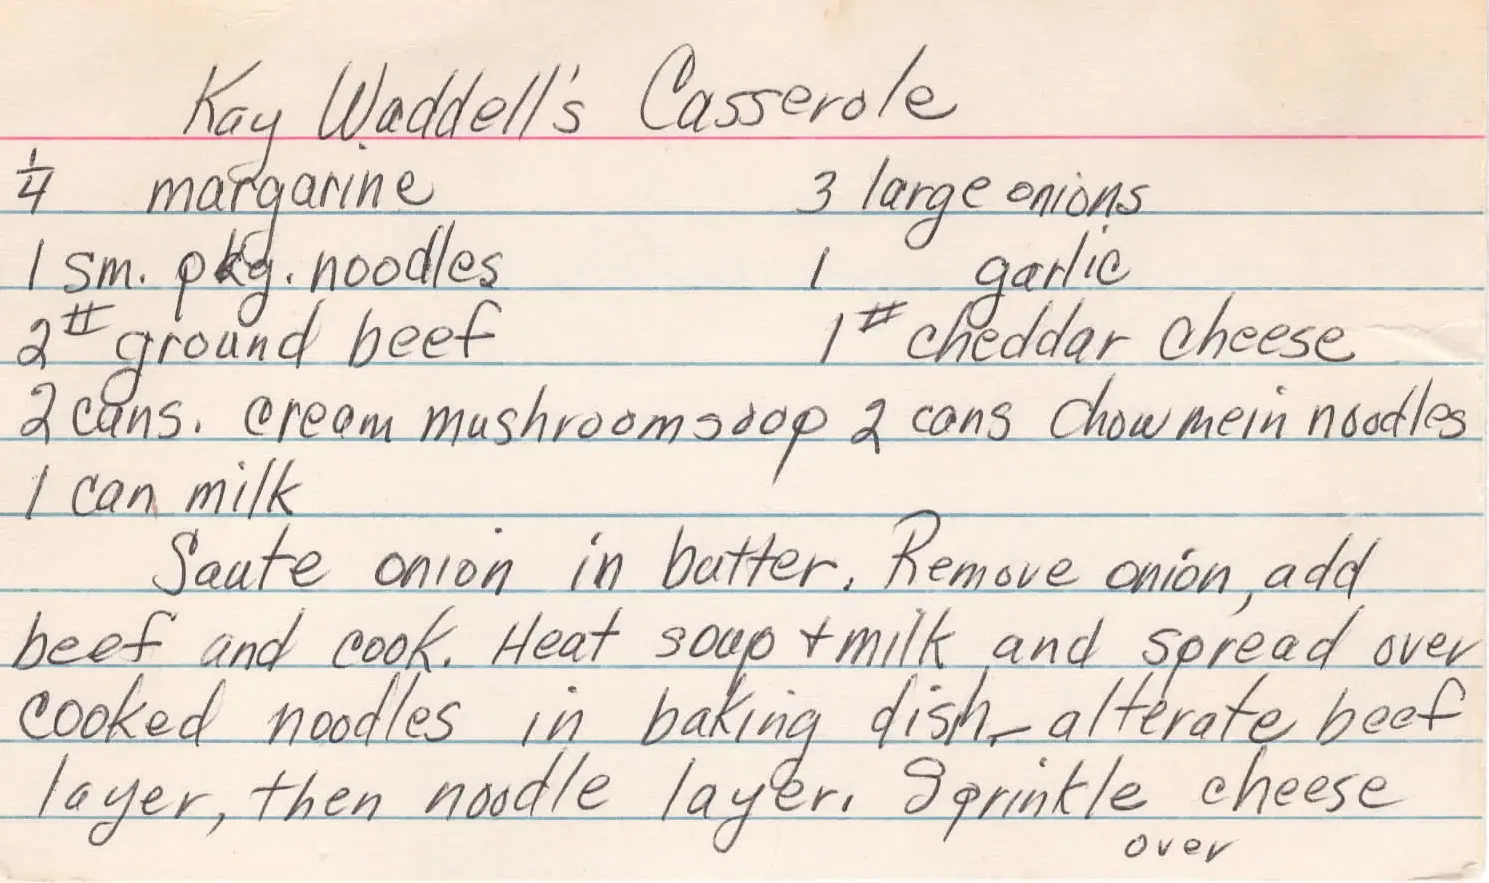 Kay Waddell's Casserole
1/4 margarine 3 large onions
1 sm. pkg. noodles 1 garlic
2# ground beef 1# cheddar cheese
2 cans. cream mushroom soop 2 cans Chow mein noodles
1 can milk
Saute onion in butter. Remove onion, add
beef and cook. Heat soup + milk and spread over
cooked noodles in baking dish - alterate beef
layer, then noodle layer. Sprinkle cheese
over